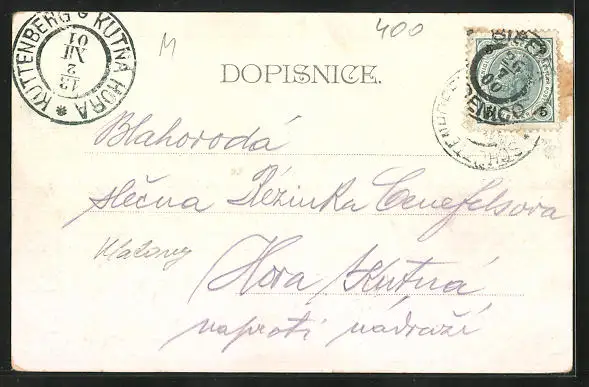 KUTTENBERG * KUTNÁ HORA *
12
XII
01
M
400
DOPISNICE.
Blahorodá
slečna Rézinka Cenefelsova
Klatovy
Hora Kutná
naproti nádraží